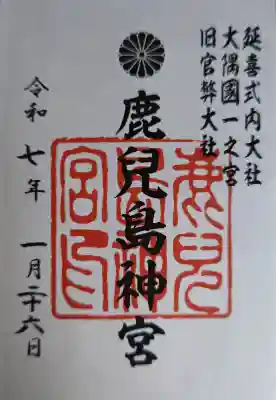 延喜式内大社
大隅國一之宮
旧官幣大社
鹿兒島神宮
令和七年 一月二十六日